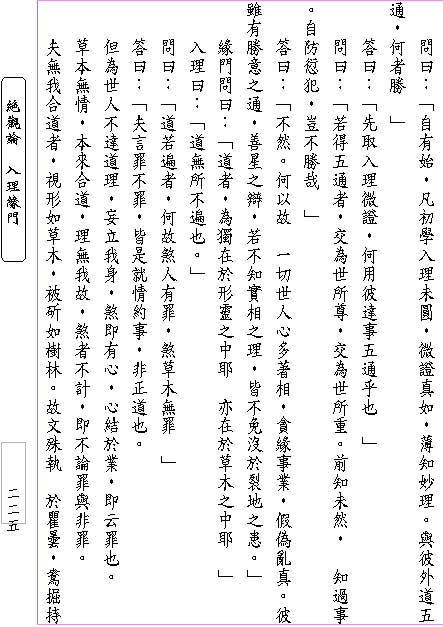 問曰：「自有始，凡初學入理未圓，微證真如，薄知妙理。與彼外道五
通，何者勝 」
答曰：「先取入理微證，何用彼達事五通乎也 」
問曰：「若得五通者，交為世所尊，交為世所重。前知未然， 知過事
。自防愆犯，豈不勝哉 」
答曰：「不然。何以故 一切世人心多著相，貪緣事業，假偽亂真。彼
雖有勝意之通，善星之辯，若不知實相之理，皆不免沒於裂地之患。」
緣門問曰：「道者，為獨在於形靈之中耶 亦在於草木之中耶 」
入理曰：「道無所不遍也。」
問曰：「道若遍者，何故煞人有罪，煞草木無罪 」
答曰：「夫言罪不罪，皆是就情約事，非正道也。
但為世人不達道理，妄立我身，煞即有心，心結於業，即云罪也。
草木無情，本來合道，理無我故，煞者不計，即不論罪與非罪。
夫無我合道者，視形如草木，被斫如樹林。故文殊執 於瞿曇，鴦掘持
絕觀論 入理緣門
二二五